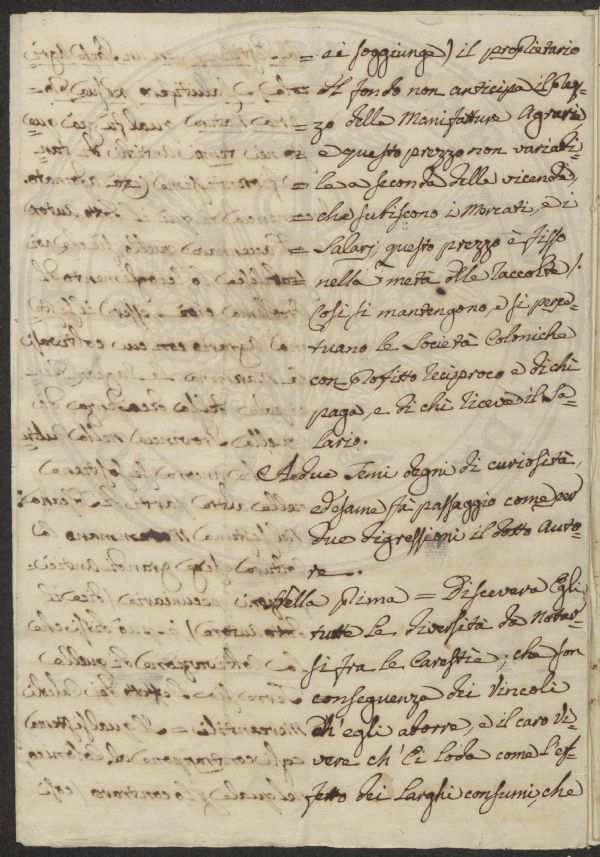 = ei soggiunge) il proprietario
= di fondo non anticipa il prez-
= zo delle Manifatture Agrarie
= e questo prezzo non variabi-
= le a seconda delle vicende,
= che subiscono i Mercati, e i
= Salarj; questo prezzo è fisso
= nella metà delle raccolte /.
Così si mantengono, e si perpe-
tuano le Società Coloniche
con profitto reciproco e di chi
paga, e di chi riceve il Sa-
lario.
A due Temi degni di curiosità,
ed esame fà passaggio come per
due digressioni il dotto Auto-
re.
Nella prima = Discevera Egli
tutte le diversità da notar-
si fra le Carestìe, che son
conseguenza dei Vincoli
ch'egli aborre, e il caro vi-
vere ch'Ei loda come l'ef-
fetto dei larghi consumi, che